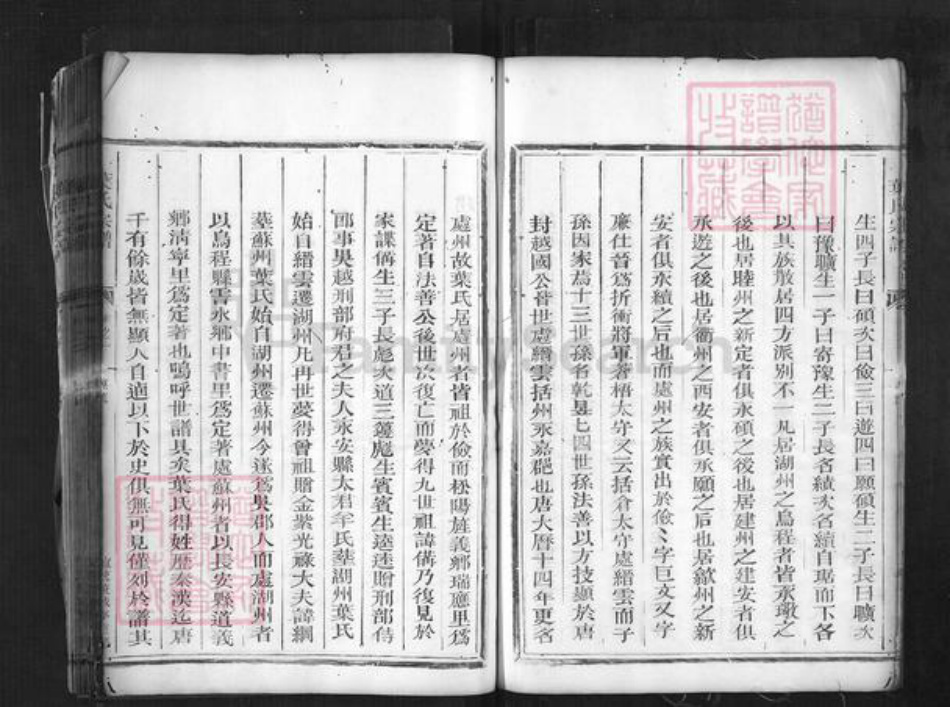 生四子長曰碩次曰儉三曰遊四曰願碩生二子長曰曠次
曰豫曠生一子曰寄豫生二子長名績次名續自琚而下各
以其族散居四方派別不一凡居湖州之烏程者皆永璥之
後也居睦州之新定者俱永碩之後也居建州之建安者俱
承遊之後也居衢州之西安者俱承願之后也居歙州之新
安者俱永續之后也而處州之族實出於儉儉字巨文又字
廉仕晉爲折衝將軍蒼梧太守又云括倉太守處縉雲而子
孫因家焉十三世孫名乾昱七四世孫法善以方技顯於唐
封越國公晉世處縉雲括州永嘉郡也唐大曆十四年更名
處州故葉氏居處州者皆祖於儉而松陽旌義鄉瑞應里爲
定著自法善公後世次復亡而夢得九世祖諱偁乃復見於
家諜偁生三子長彪次道三蘧彪生賓賓生逵逵贈刑部侍
郎事吳越刑部府君之夫人永安縣太君羊氏塟湖州葉氏
始自縉雲遷湖州凡冉世夢得曾祖贈金紫光祿大夫諱綱
塟蘇州葉氏始自湖州遷蘇州今遂爲吳郡人而處湖州者
以烏程縣雪永鄉中書里爲定著處蘇州者以長安縣道義
鄉清寧里爲定著也嗚呼世譜具矣葉氏得姓歷秦漢迄唐
千有餘歲皆無顯人自逈以下於史俱無可見僅列於譜其
葉氏宗譜
FamilySearch